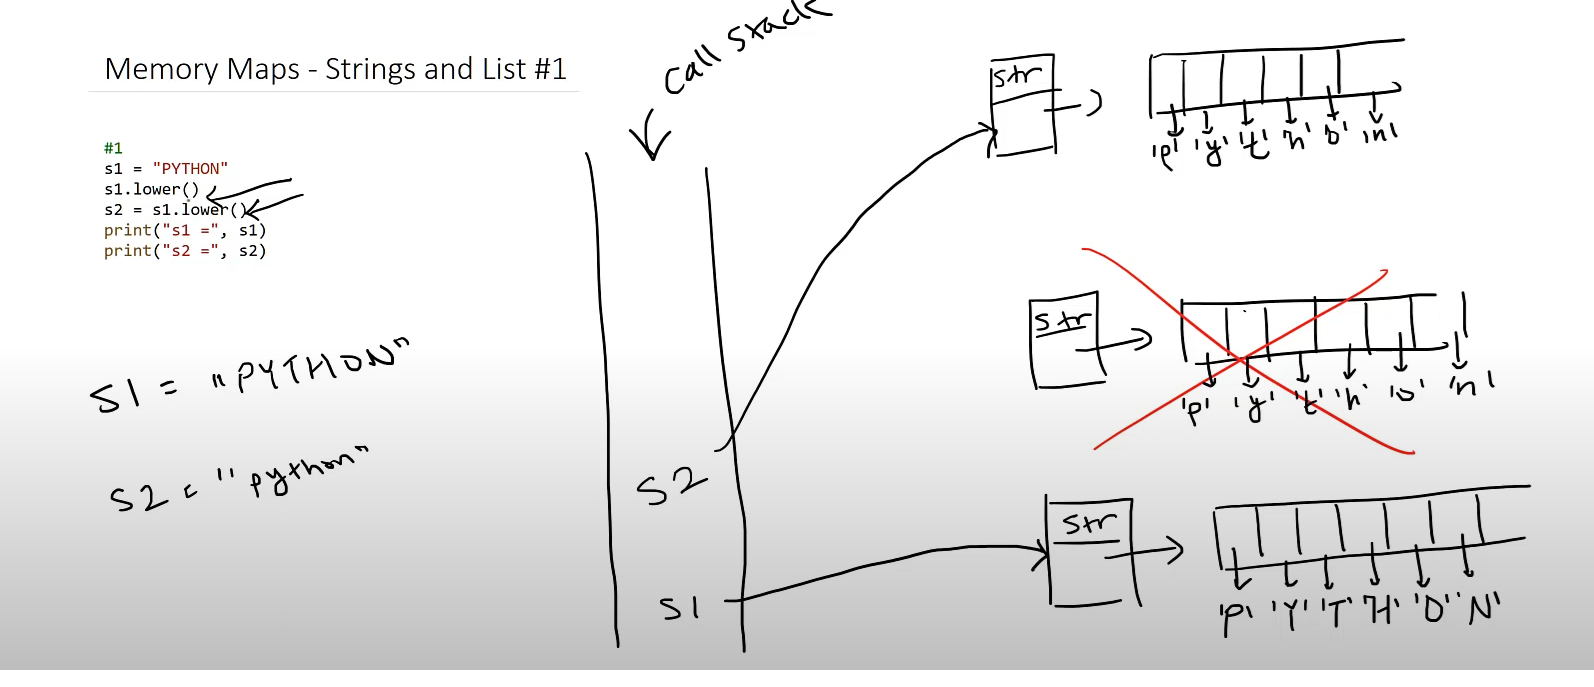 Memory Maps - Strings and List #1
#1
s1 = "PYTHON"
s1.lower()
s2 = s1.lower()
print("s1 =", s1)
print("s2 =", s2)
S1 = "PYTHON"
S2 = "python"
Call Stack
S2
S1
str
'p' 'y' 't' 'h' 'o' 'n'
str
'p' 'y' 't' 'h' 'o' 'n'
str
'P' 'Y' 'T' 'H' 'O' 'N'